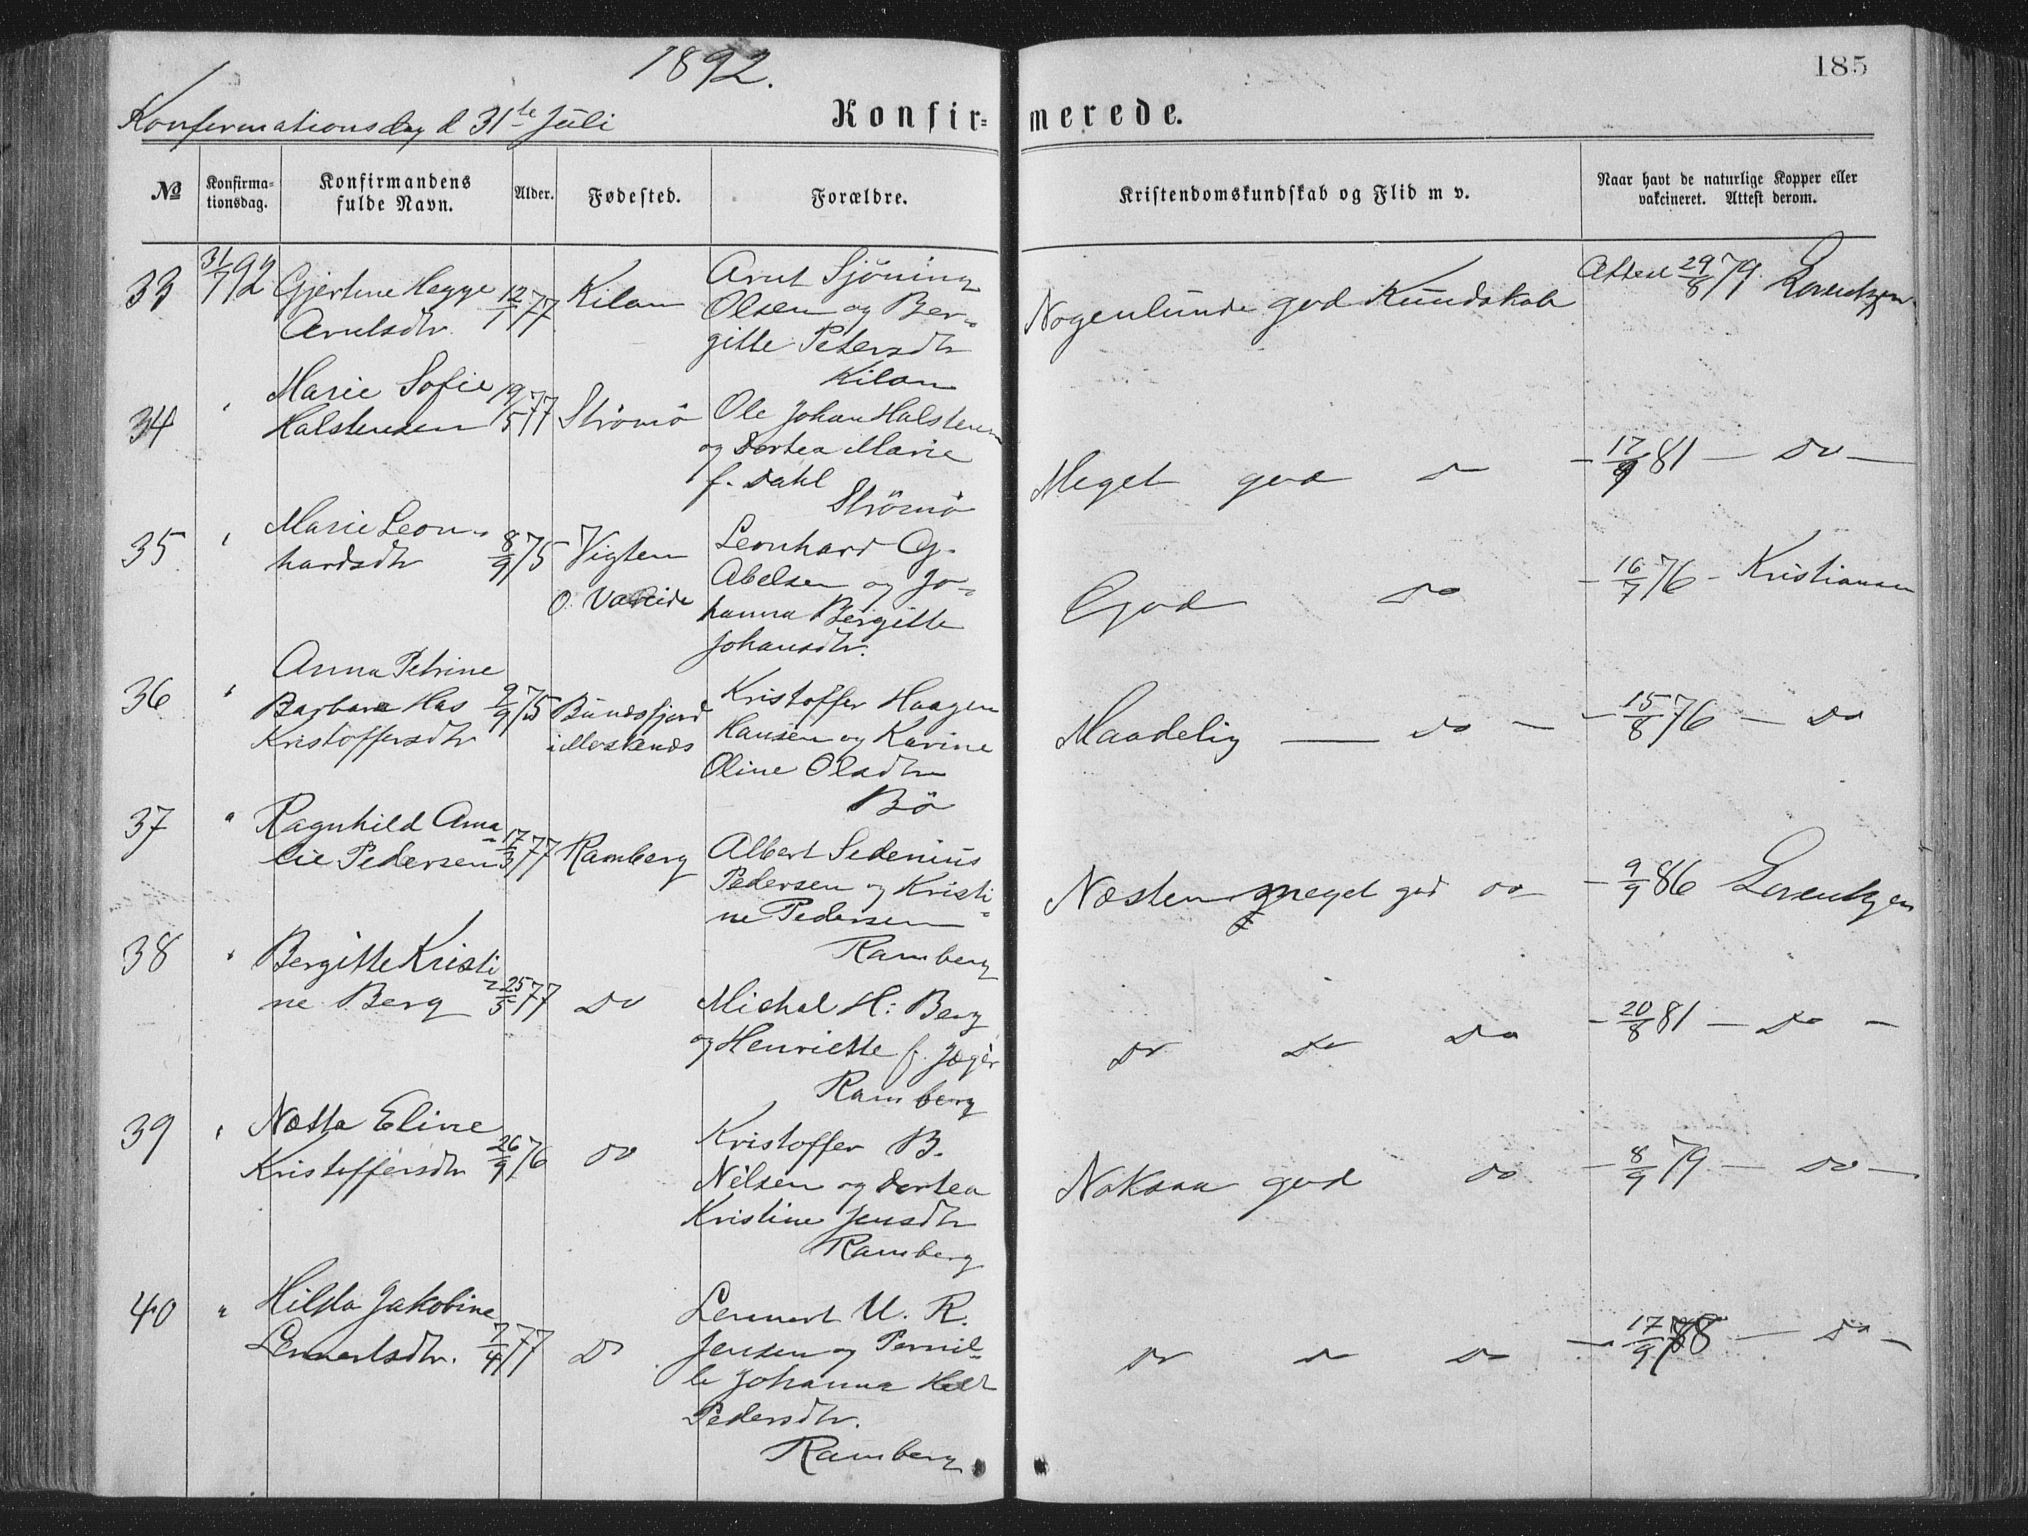 1892.
185
Konfirmationsdag d 31te Juli
Konfir-
merede.
No
Konfirma-
tionsdag.
Konfirmandens
fulde Navn.
Alder.
Fødested.
Forældre.
Kristendomskundskab og Flid m v.
Naar havt de naturlige Kopper eller
vakcineret. Attest derom.
33 31/7 92 Gjertine Hegge 12/1 77 Kilan Arnt Sjöning
Arntsdtr. Olsen og Ber-
gitte Petersdtr
Kilan
Nogenlunde god Kundskab Attest 29/8 79. Lorentzen
34 " Marie Sofie 19/5 77 Strömö Ole Johan Halstensen
Halstensen og Dortea Marie
f. Dahl
Strömö
Meget god do - 17/9 81 - Do -
35 " Marie Leon- 8/9 75 Vigten Leonhard G.
hardsdtr O. Vareide Abelsen og Jo-
hanna Bergitte
Johansdtr.
God do - 16/7 76 - Kristiansen
36 " Anna Petrine
Barbara Has 9/9 75 Bundsfjord Kristoffer Haagen
Kristoffersdtr i Moskenæs Hansen og Karine
Oline Olsdtr
Bö
Maadelig - do - - 15/8 76 - Do
37 " Ragnhild Ama- 17/3 77 Ramberg Albert Sedenius
lie Pedersen Pedersen og Kristi-
ne Pedersen
Ramberg
Næsten meget god do - 9/9 86 Lorentzen
38 " Bergitte Kristi-
ne Berg 25/5 77 Do Michal H. Berg
og Henriette f. Jæger
Ramberg
Do Do Do - 20/8 81 - Do -
39 " Netta Eline
Kristoffersdtr 26/9 76 do Kristoffer B.
Nilsen og Dortea
Kristine Jensdtr
Ramberg
Noksaa god do - 8/9 79 - Do -
40 " Hilda Jakobine
Lennertsdtr. 7/4 77 Do Lennert U. R.
Jensen og Pernil-
le Johanna
Pedersdtr.
Ramberg
Do do do - 17/9 78 - Do -